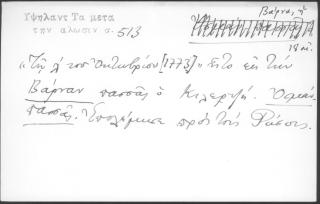 Ὑψηλαντ Τα μετα
την αλωσιν σ. 513
Βάρνας, ἡ
18 αἰ.
«Τῇ λ' του Ὀκτωβρίου [1773]» ἦτο εἰς τὴν
Βάρναν πασσᾶς ὁ Κιλερτζῆ. Ὀσμάν
πασᾶς. Ἐπολέμησε πρὸς τοὺς Ρώσους.